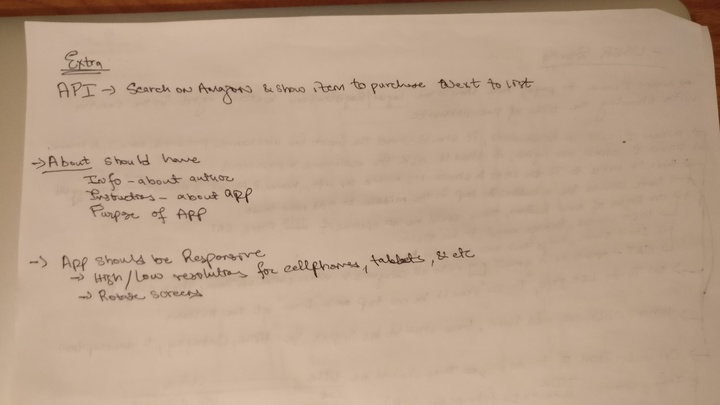 Extra
API → Search on Amazon & show item to purchase next to list
→ About should have
Info - about author
Instructions - about app
Purpose of App
→ App should be Responsive
→ High / Low resolutions for cellphones, tablets, & etc
→ Rotate screens